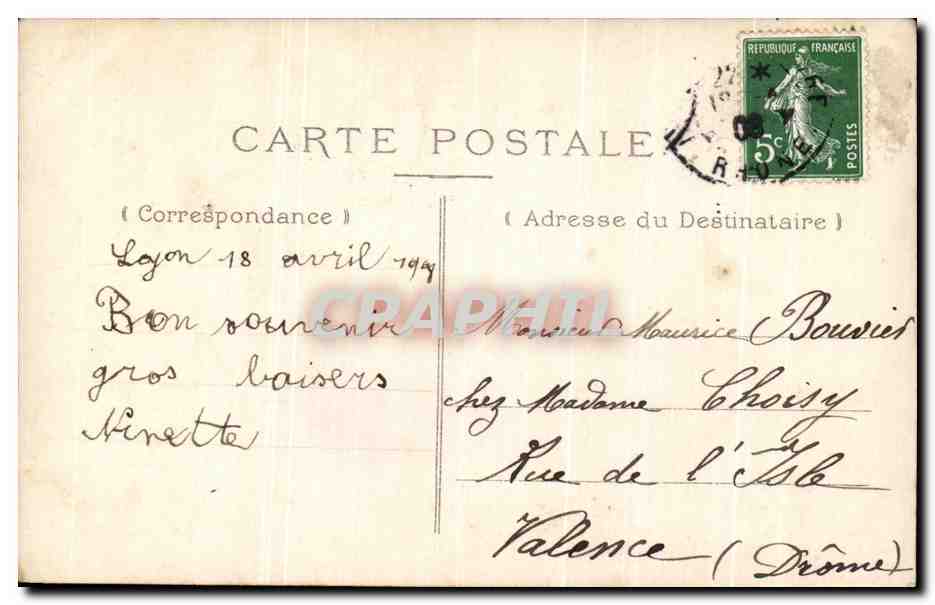 RÉPUBLIQUE FRANÇAISE
5c
POSTES
RHONE
CARTE POSTALE
( Correspondance )
Lyon 18 avril
Bon souvenir
gros baisers
Ninette
( Adresse du Destinataire )
Monsieur Maurice Bouvier
chez Madame Choisy
Rue de l'Isle
Valence (Drôme)
CRAPHTI